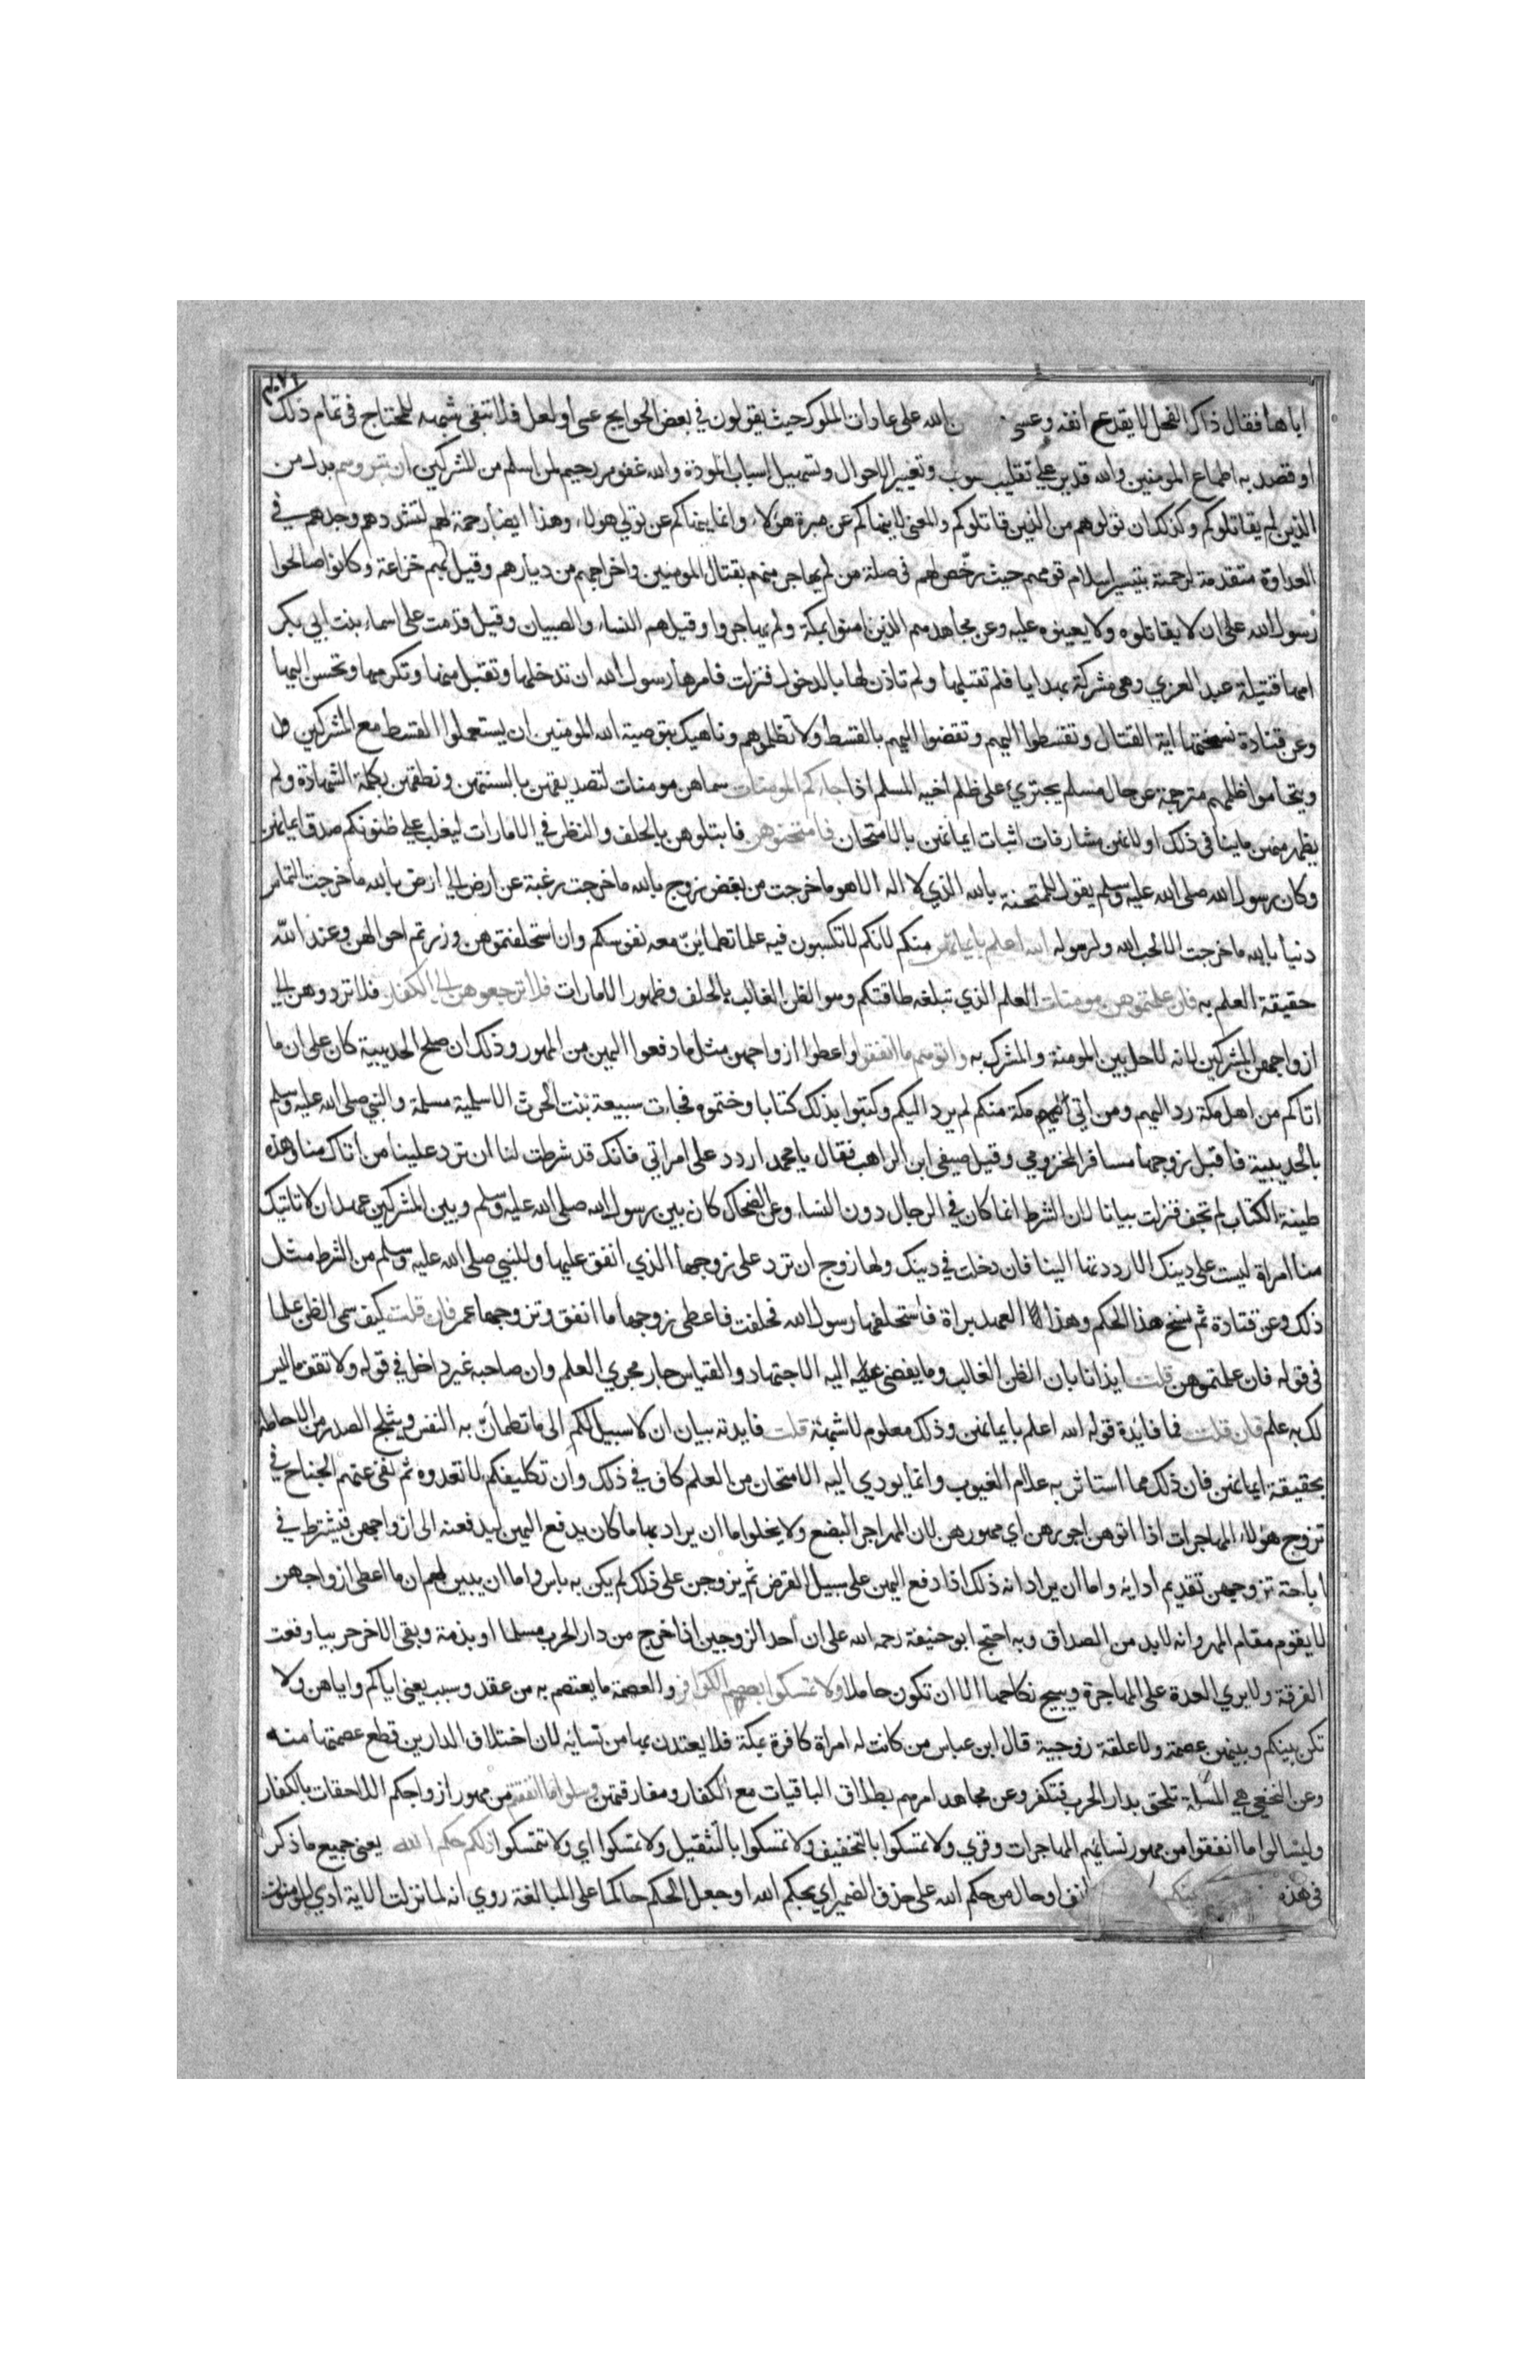 اباها فقال ذاك الفحل لا يقدع انفه وعسى الله على عادات الملوك حيث يقولون في بعض الحوايج عسى او لعل فلا تبقى شبهه للمحتاج في تمام ذلك
او قصد به اطماع المومنين والله قدير على تقليب وتغيير الاحوال وتسهيل اسباب المودة والله غفور رحيم لمن اسلم من المشركين ان تبروهم بدل من
الذين لم يقاتلوكم وكذلك ان تولوهم من الذين قاتلوكم والمعنى لا ينهاكم عن مبرة هؤلاء وانما ينهاكم عن تولي هولاء وهذا ايضا رحمة لهم لتشددهم وجدهم في
العداوة متقدمة لرحمته بتيسير اسلام قومهم حيث رخّص لهم في صلة من لم يجاهر منهم بقتال المومنين واخراجهم من ديارهم وقيل بهم خزاعة وكانوا صالحوا
رسول الله على ان لا يقاتلوه ولا يعينوه عليه وعن مجاهد هم الذين امنوا بمكة ولم يهاجروا وقيل هم النساء والصبيان وقيل قدمت على اسماء بنت ابي بكر
امها قتيلة عبد العزي وهى مشركة بهدايا فلم تقبلها ولم تاذن لها بالدخول فنزلت فامرها رسول الله ان تدخلها وتقبل منها وتكرمها وتحسن اليها
وعن قتادة نسختها اية القتال وتقسطوا اليهم وتقضوا اليهم بالقسط ولا تظلموهم وناهيك بتوصية الله المومنين ان يستعملوا القسط مع المشركين
ويتحاموا ظلمهم مترجمة عن حال مسلم يجتري على ظلم اخيه المسلم اذا جاءكم المومنات سماهن مومنات لتصديقهن بالسنتهن ونطقهن بكلمة الشهادة ولم
يظهر منهن ما ينافي ذلك او لانهن مشارفات اثبات ايمانهن بالامتحان فامتحنوهن فابتلوهن بالحلف والنظر في الامارات ليغلب على ظنونكم صدق ايمانهن
وكان رسول الله صلى الله عليه وسلم يقول للممتحنة بالله الذي لا اله الا هو ما خرجت من بغض زوج بالله ما خرجت رغبة عن ارض الى ارض بالله ما خرجت التماس
دنيا بالله ما خرجت الا لحب الله ولرسوله الله اعلم بايمانهن منكم لانكم لا تكسبون فيه علما تطمئنّ معه نفوسكم وان استحلفتموهن وزرتم احوالهن وعند الله
حقيقة العلم به فان علمتموهن مومنات العلم الذي تبلغه طاقتكم وهو الظن الغالب بالحلف وظهور الامارات فلا ترجعوهن الى الكفار فلا تردوهن الى
ازواجهن المشركين لانه لا حل بين المومنة والمشرك به واتوهم ما انفقوا واعطوا ازواجهن مثل ما دفعوا اليهن من المهور وذلك ان صلح الحديبية كان على ان ما
اتاكم من اهل مكة رد اليهم ومن اتى مكة منكم لم يرد اليكم وكتبوا بذلك كتابا وختموه فجات سبيعة بنت الحرث الاسلمية مسلمة والنبي صلى الله عليه وسلم
بالحديبية فاقبل زوجها مسافر المخزومي وقيل صيفي ابن الراهب فقال يا محمد اردد على امراتي فانك قد شرطت لنا ان ترد علينا من اتاك منا وهذه
طينة الكتاب لم تجف فنزلت بيانا لان الشرط انما كان في الرجال دون النساء وعن الضحاك كان بين رسول الله صلى الله عليه وسلم وبين المشركين عهد ان لا تاتيك
منا امراة ليست على دينك الا رددتها الينا فان دخلت في دينك ولها زوج ان ترد على زوجها الذي انفق عليها وللنبي صلى الله عليه وسلم من الشرط مثل
ذلك وعن قتادة ثم نسخ هذا الحكم وهذا العهد براة فاستحلفها رسول الله فحلفت فاعطى زوجها ما انفق وتزوجها عمر فان قلت كيف سمى الظن علما
في قوله فان علمتموهن قلت ايذانا بان الظن الغالب وما يفضى اليه الاجتهاد والقياس جار مجري العلم وان صاحبه غير داخل في قوله ولا تقف ما ليس
لك به علم فان قلت فما فائدة قوله الله اعلم بايمانهن وذلك معلوم لا شبهة قلت فايدته بيان ان لا سبيل لكم الى ما تطمانّ به النفس ويثلج الصدر من الاحاطة
بحقيقة ايمانهن فان ذلك مما استاثر به علام الغيوب وانما يودي اليه الامتحان من العلم كاف في ذلك وان تكليفكم لا تعدوه ثم نفى عنهم الجناح في
تزوج هؤلاء المهاجرات اذا اتوهن اجورهن اي مهورهن لان المهر اجر البضع ولا يخلوا ما ان يراد بها ما كان يدفع اليهن ليدفعنه الى ازواجهن فيشترط في
اباحة تزوجهن تقديم ادائه واما ان يراد انه ذلك اذا دفع اليهن على سبيل القرض ثم يزوجن على ذلك لم يكن به باس واما ان يبين لهم ان ما اعطى ازواجهن
لا يقوم مقام المهر وانه لا بد من الصداق وبه احتج ابو حنيفة رحمه الله على ان احد الزوجين اذا خرج من دار الحرب مسلما او بذمة وبقى الاخر حربيا وقعت
الفرقة ولا يري العدة على المهاجرة ويبيح نكاحها الا ان تكون حاملا ولا تمسكوا بعصم الكوافر والعصمة ما يعتصم به من عقد وسبب يعنى اياكم واياهن ولا
تكن بينكم وبينهن عصمة ولا علقة زوجية قال ابن عباس من كانت له امراة كافرة بمكة فلا يعتدن بها من نسائه لان اختلاف الدارين قطع عصمتها منه
وعن النخعي هي المسلمة تلحق بدار الحرب فتكفر وعن مجاهد امرهم بطلاق الباقيات مع الكفار ومفارقتهن وسلوا ما انفقتم من مهور ازواجكم اللاحقات بالكفار
وليسالوا ما انفقوا من مهور نسائهم المهاجرات وقري ولا تمسكوا بالتخفيف ولا تمسكوا بالتثقيل ولا تمسكوا اي ولا تتمسكوا ذلكم حكم الله يعنى جميع ما ذكر
في هذه او حال من حكم الله على حذف الضمير اي يحكم الله او جعل الحكم حاكما على المبالغة روي انه لما نزلت الاية ادي المومنون